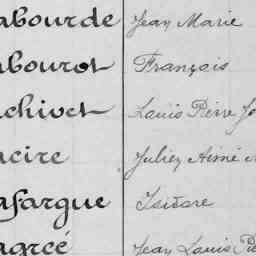 abourde Jean Marie
abourot François
achivet Louis Pierre Jo
acire Julien Aimé
afargue Isidore
agreé Jean Louis Pie